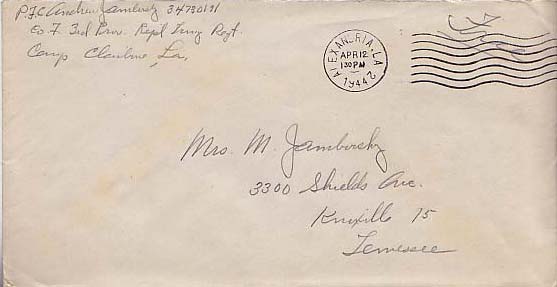 PFC Andrew Jambursky 34730191
Co F. 3rd Prov. Repl Trng Regt.
Camp Claiborne, La.
ALEXANDRIA, LA.
APR 12
130 PM
1944
Free
Mrs. M. Jambursky
3300 Shields Ave.
Knixille 15
Tennessee